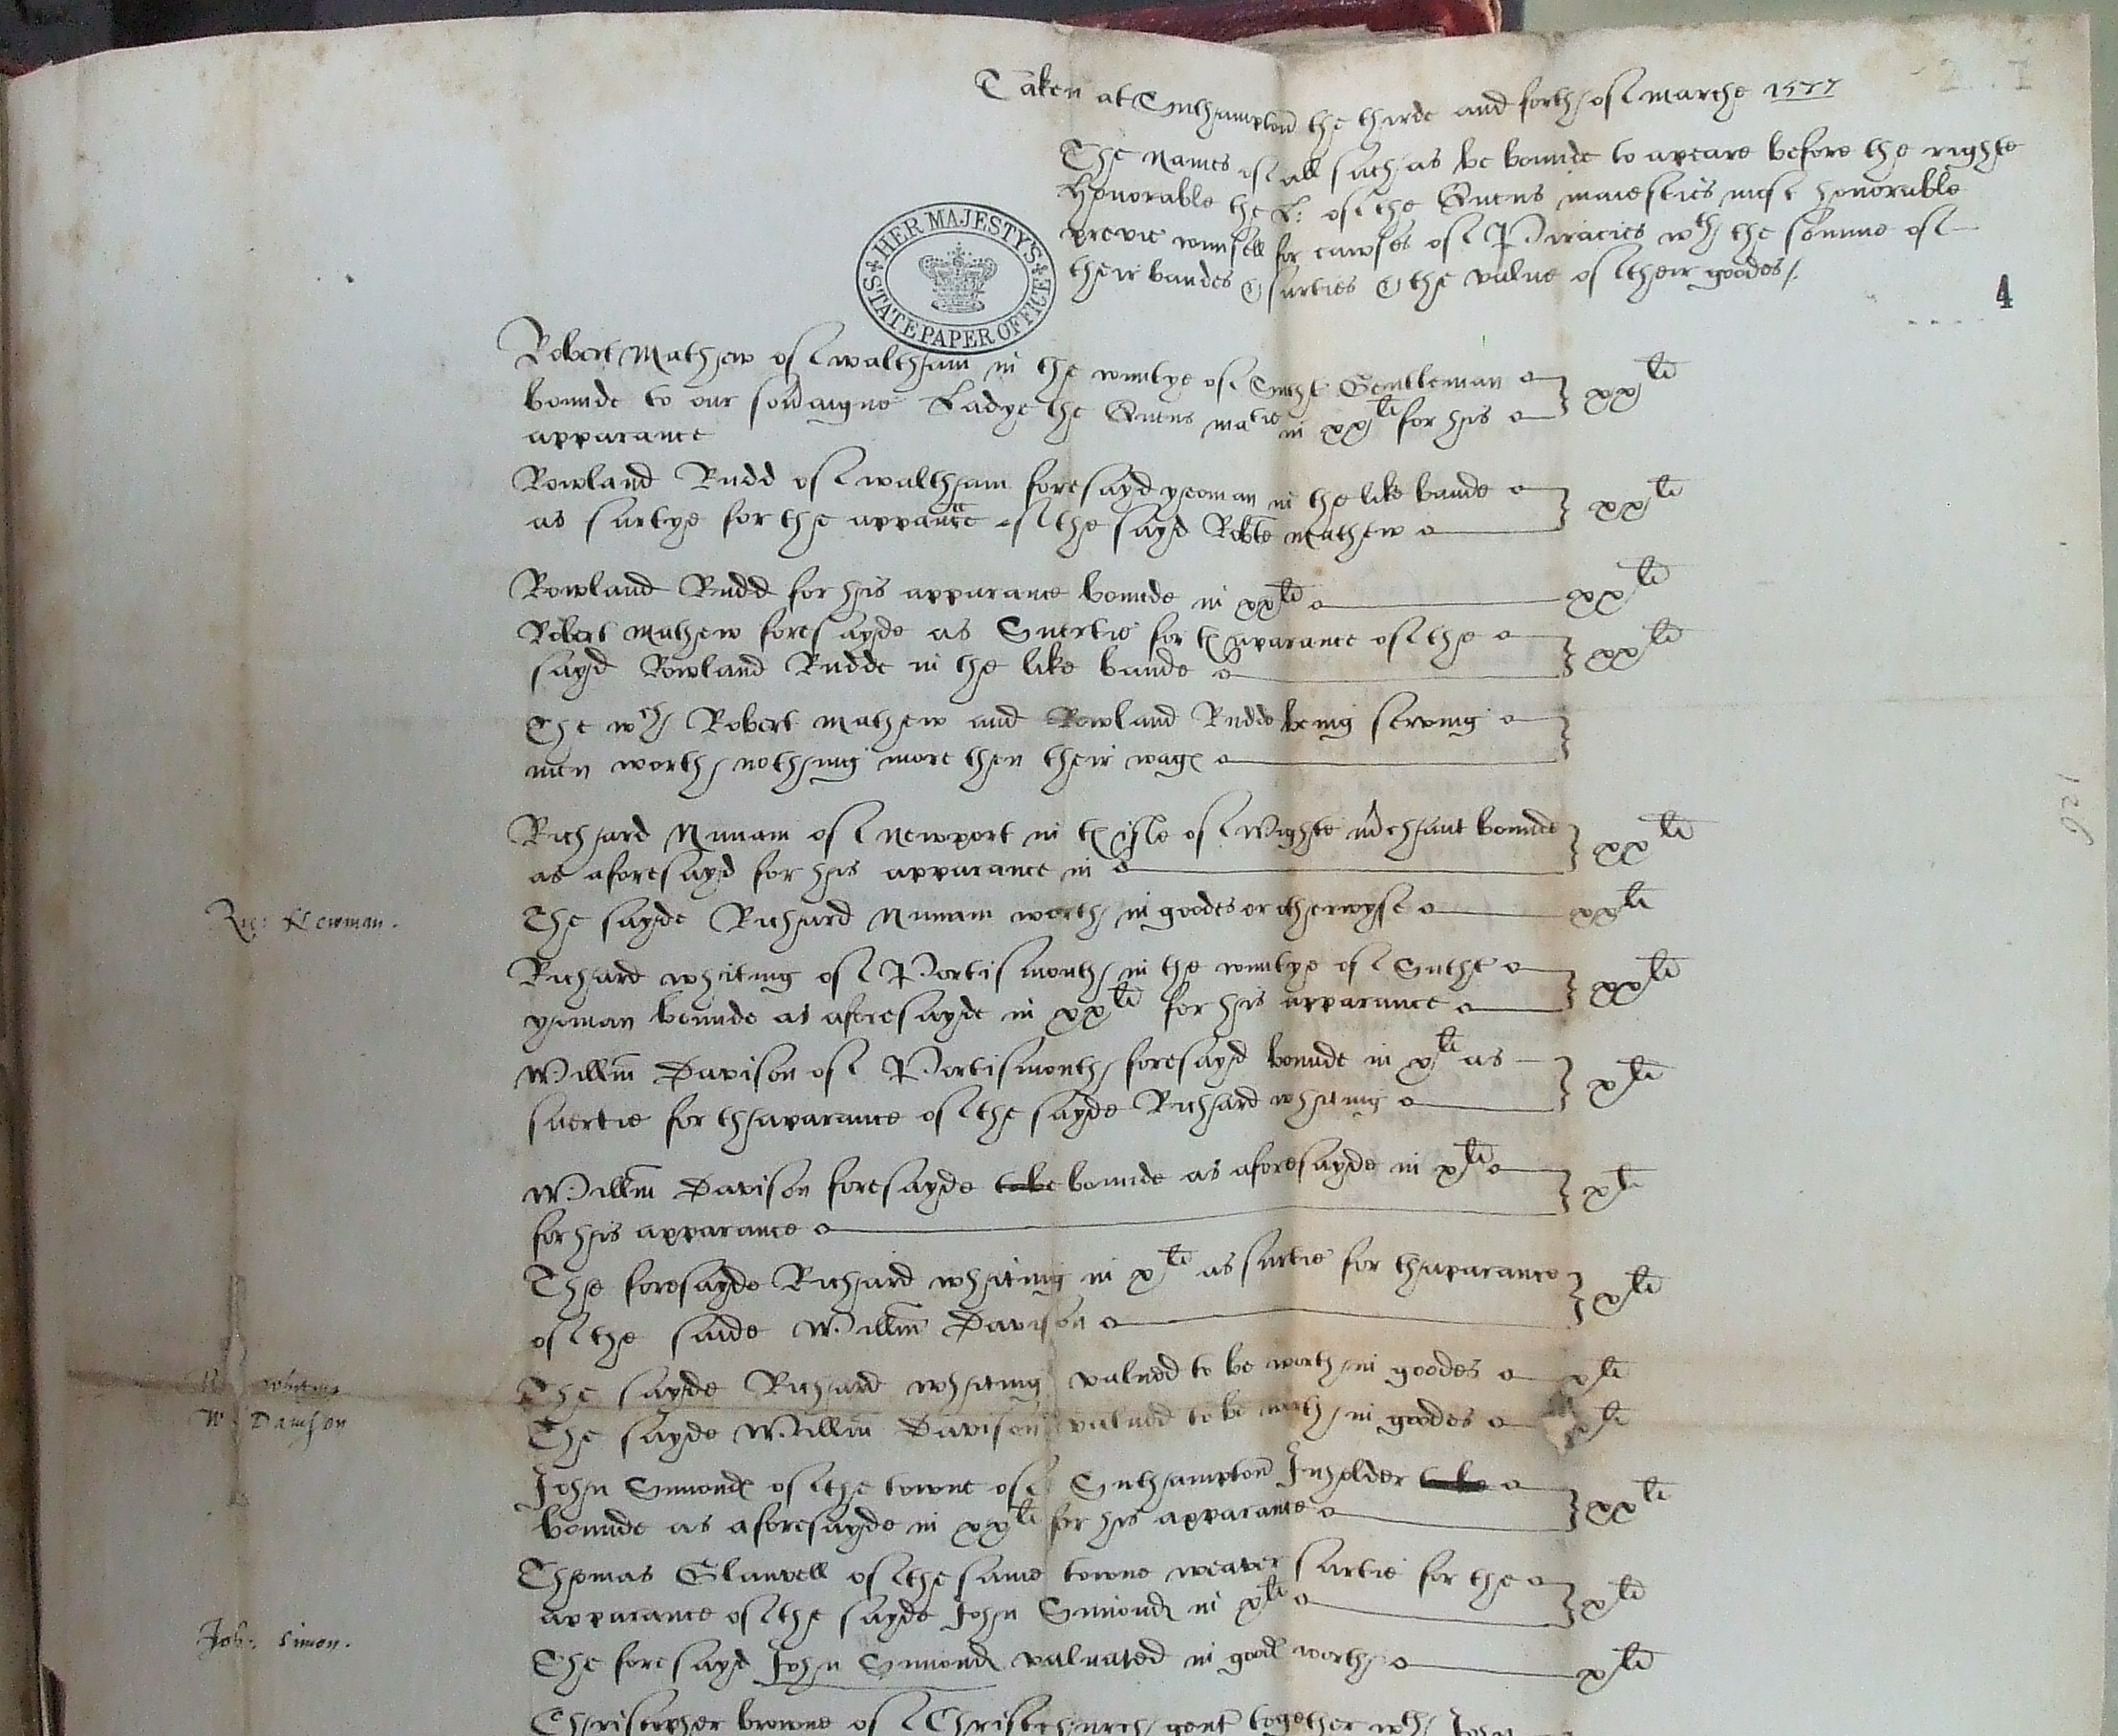 Taken at Suthampton the thirde and forth of marche 1577
The names of all such as be bounde to apeare before the righte
Honorable the L: of the Quens maiesties most honorable
previe counsell for cawses of Piracies wth the somme of
their bandes & surties & the value of their goodes /.
HER MAJESTY'S STATE PAPER OFFICE
4
Robert Mathew of waltham in the countye of Sutht Gentleman xxli
bounde to our soveraigne Ladye the Quens matie in xxli for his
apparance
Rowland Rudd of waltham foresayd yeoman in the like bande xxli
as surtye for the apparance of the sayd Robte mathew
Rowland Rudd for his apparance bounde in xxli xxli
Robert mathew foresayde as Suertie for the aparance of the xxli
sayd Rowland Rudde in the like bande
The wch Robert mathew and Rowland Rudde being serving
men worth nothing more then their wages
Richard Numam of newport in the isle of Wighte mchaut bounde xxli
as aforesayd for his apparance in
Ric: Newman.
The sayde Richard Numam worth in goodes or otherwyse xxli
Richard whiting of Portismouth in the countye of Sutht xxli
yoman bounde as aforesayde in xxli for his apparance
Willm Davison of Portismouth foresayd bounde in xli as xli
suertie for thaparance of the sayde Richard whiting
Willm Davison foresayde bounde as aforesayde in xli xli
for his apparance
The foresayde Richard whiting in xli as surtie for thaparance xli
of the saide Willm Davison
R whiting
The sayde Richard whiting valued to be worth in goodes xli
W: Davison
The sayde Willm Davison valued to be worth in goodes xli
John Simondes of the towne of Suthampton Inholder xxli
bounde as aforesayde in xxli for his apparance
Thomas Glanvell of the same towne weaver surtie for the xli
apparance of the sayde John Simondes in xli
Joh: Simon.
The foresayd John Simondes valuated in goodes worth xli
Christopher browne of Christchurch gent together wth John
126